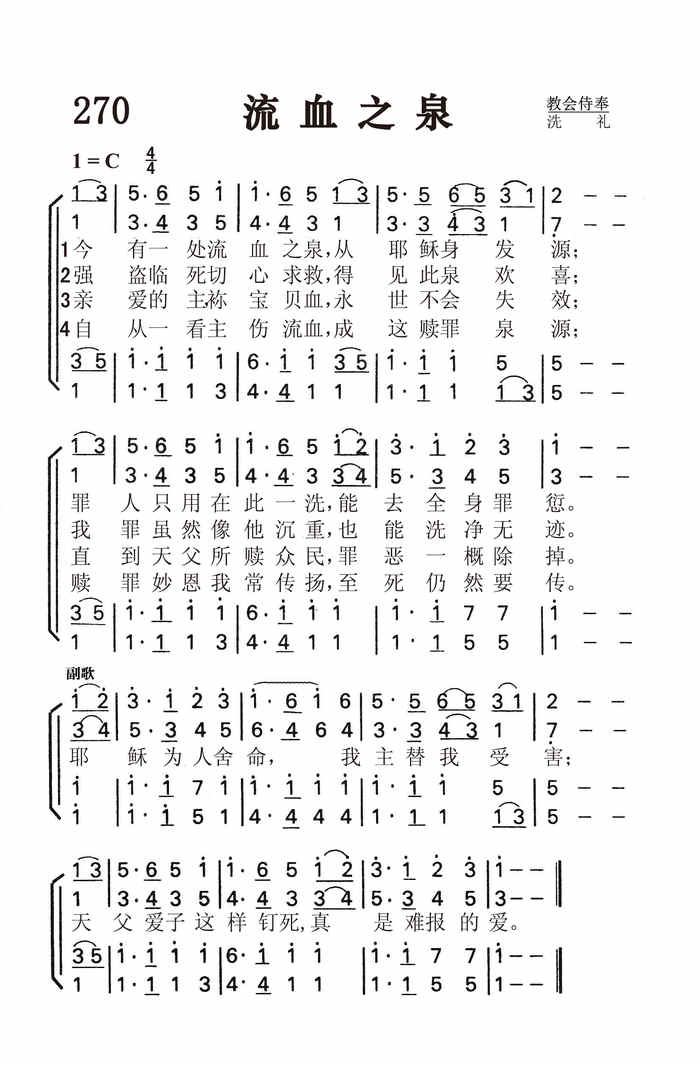 270 流血之泉 教会侍奉
洗 礼
1=C 4/4
1 3 | 5· 6 5 i | i· 6 5 1 3 | 5· 5 6 5 3 1 | 2 - -
1 | 3· 4 3 5 | 4· 4 3 1 | 3· 3 4 3 1 | 7 - -
1今 有一 处流 血之泉,从 耶稣身 发 源;
2强 盗临 死切 心求救,得 见此泉 欢 喜;
3亲 爱的 主祢 宝贝血,永 世不会 失 效;
4自 从一 看主 伤流血,成 这赎罪 泉 源;
3 5 | i· i i i | 6· i i 3 5 | i· i i 5 | 5 - -
1 | 1· 1 1 3 | 4· 4 1 1 | 1· 1 1 1 3 | 5 - -
1 3 | 5· 6 5 i | i· 6 5 i 2 | 3· i 2 3 | i - -
1 | 3· 4 3 5 | 4· 4 3 3 4 | 5· 5 4 5 | 3 - -
罪 人只用在 此一洗,能 去全身罪 愆。
我 罪虽然像 他沉重,也 能洗净无 迹。
直 到天父所 赎众民,罪 恶一概除 掉。
赎 罪妙恩我 常传扬,至 死仍然要 传。
3 5 | i· i i i | 6· i i i | i· i 7 7 | i - -
1 | 1· 1 1 3 | 4· 4 1 1 | 1· 1 5 5 | 1 - -
副歌
i 2 | 3· i 2 3 | i· 6 i 6 | 5· 5 6 5 3 1 | 2 - -
3 4 | 5· 3 4 5 | 6· 4 6 4 | 3· 3 4 3 1 | 7 - -
耶 稣为人舍 命, 我 主替我 受 害;
i | i· i 7 i | i· i i i | i· i i 5 | 5 - -
1 | 1· 1 5 1 | 4· 4 4 4 | 1· 1 1 1 3 | 5 - -
1 3 | 5· 6 5 i | i· 6 5 i 2 | 3· i 2 3 | 1 - - ‖
1 | 3· 4 3 5 | 4· 4 3 3 4 | 5· 3 4 5 | 3 - - ‖
天 父爱子这 样钉死,真 是难报的 爱。
3 5 | i· i i i | 6· i i i | i· i 7 7 | i - - ‖
1 | 1· 1 1 3 | 4· 4 1 1 | 1· 1 5 5 | 1 - - ‖